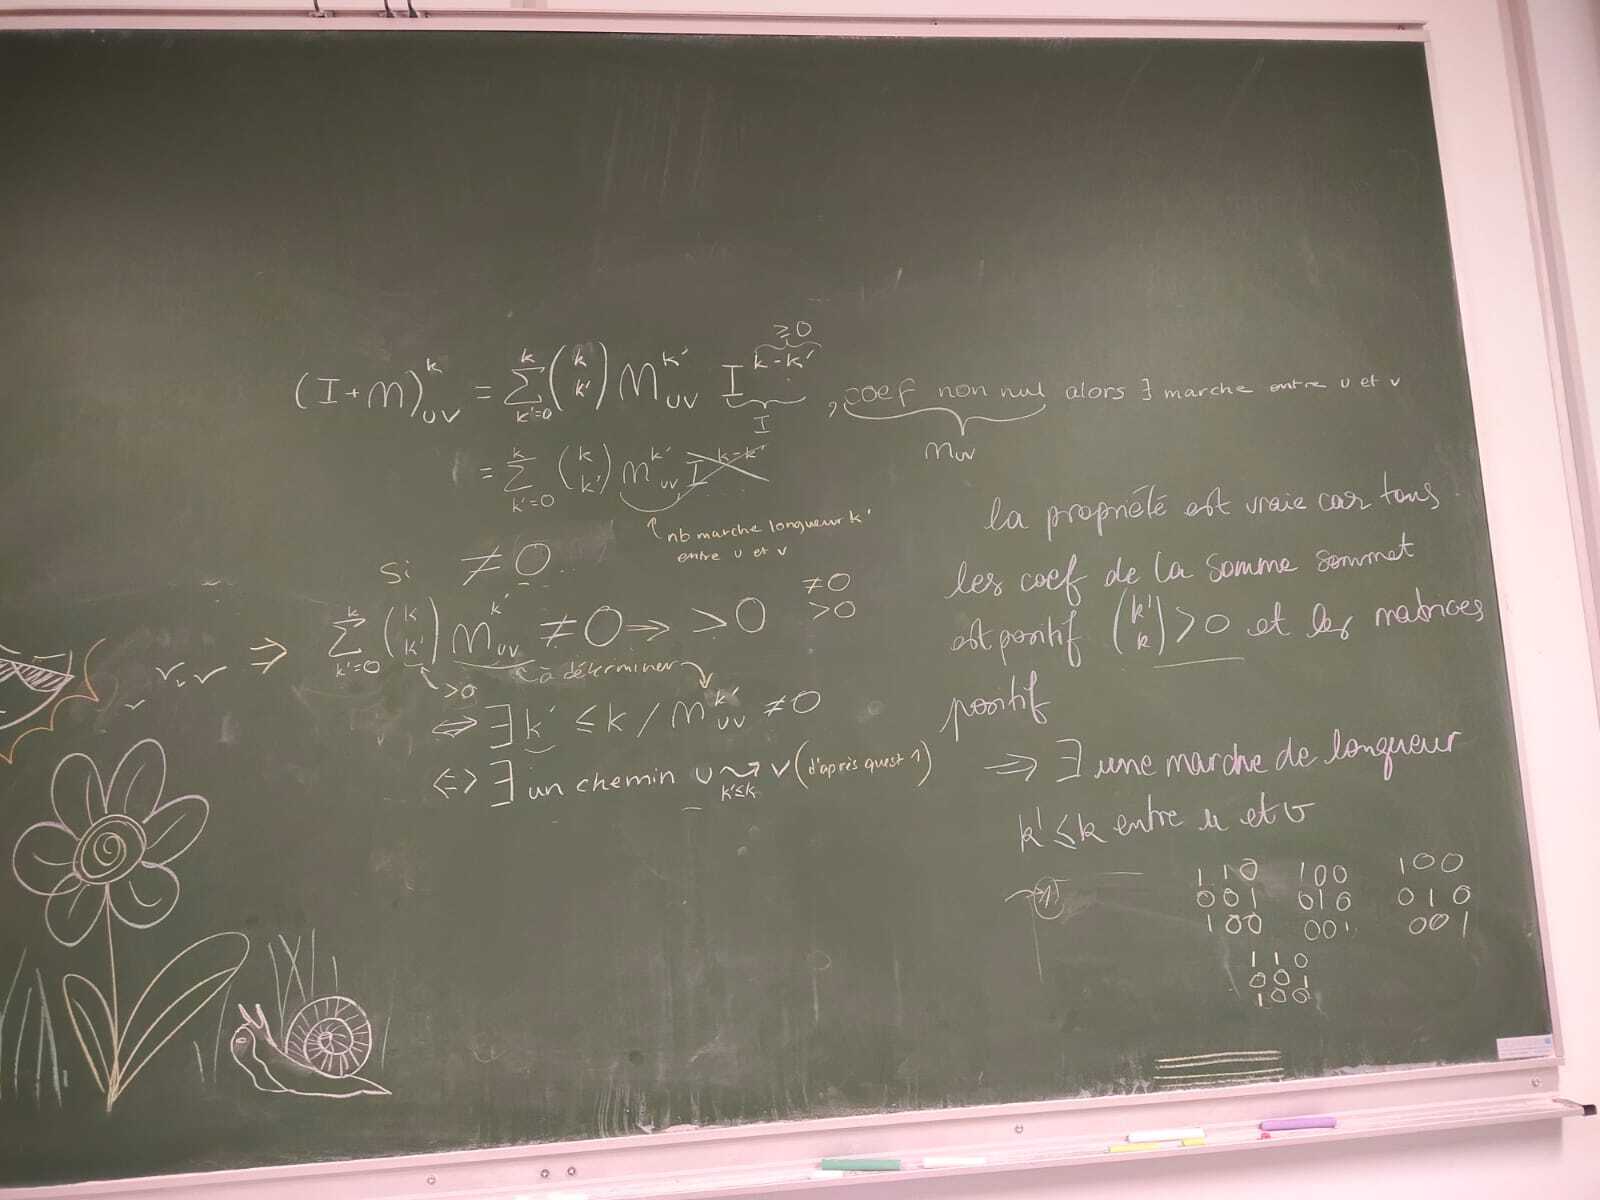 (I+M)^k_{uv} = \sum_{k'=0}^{k} \binom{k}{k'} M^{k'}_{uv} I^{k-k'} , coef non nul alors ∃ marche entre u et v
≥0
I
M_{uv}
= \sum_{k'=0}^{k} \binom{k}{k'} M^{k'}_{uv} I^{k-k'}
nb marche longueur k'
entre u et v
Si ≠0
⇒ \sum_{k'=0}^{k} \binom{k}{k'} M^{k'}_{uv} ≠0 ⇒ >0
≠0
>0
>0
à déterminer
⇔ ∃ k' ≤ k / M^{k'}_{uv} ≠0
⇔ ∃ un chemin u ⇝ v (d'après quest 1)
k'≤k
la propriété est vraie car tous
les coef de la somme sommet
est positif \binom{k'}{k} >0 et les matrices
positif
⇒ ∃ une marche de longueur
k' ≤ k entre u et v
1 1 0 1 0 0 1 0 0
0 0 1 0 1 0 0 1 0
1 0 0 0 0 1 0 0 1
1 1 0
0 0 1
1 0 0